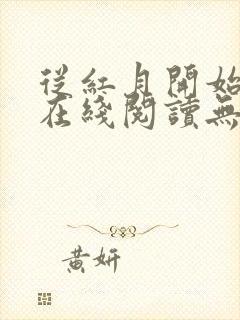 從紅月開始
在綫閱讀無
黃妍